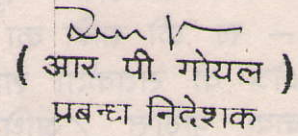 ( आर. पी. गोयल )
प्रबन्धा निदेशक